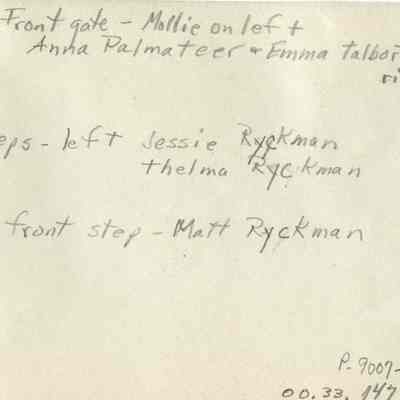 Front gate - Mollie on left
Anna Palmateer & Emma Talbot
ri
eps - left Jessie Ryckman
Thelma Ryckman
front step - Matt Ryckman
P-9007-
00.33.147